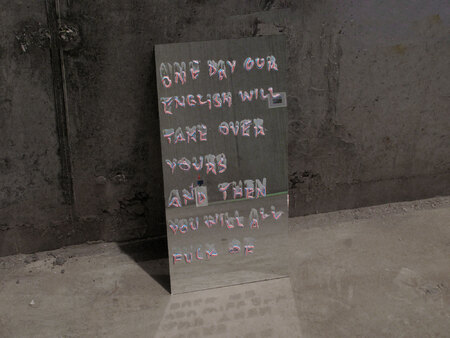 ONE DAY OUR
ENGLISH WILL
TAKE OVER
YOURS
AND THEN
YOU WILL ALL
FUCK